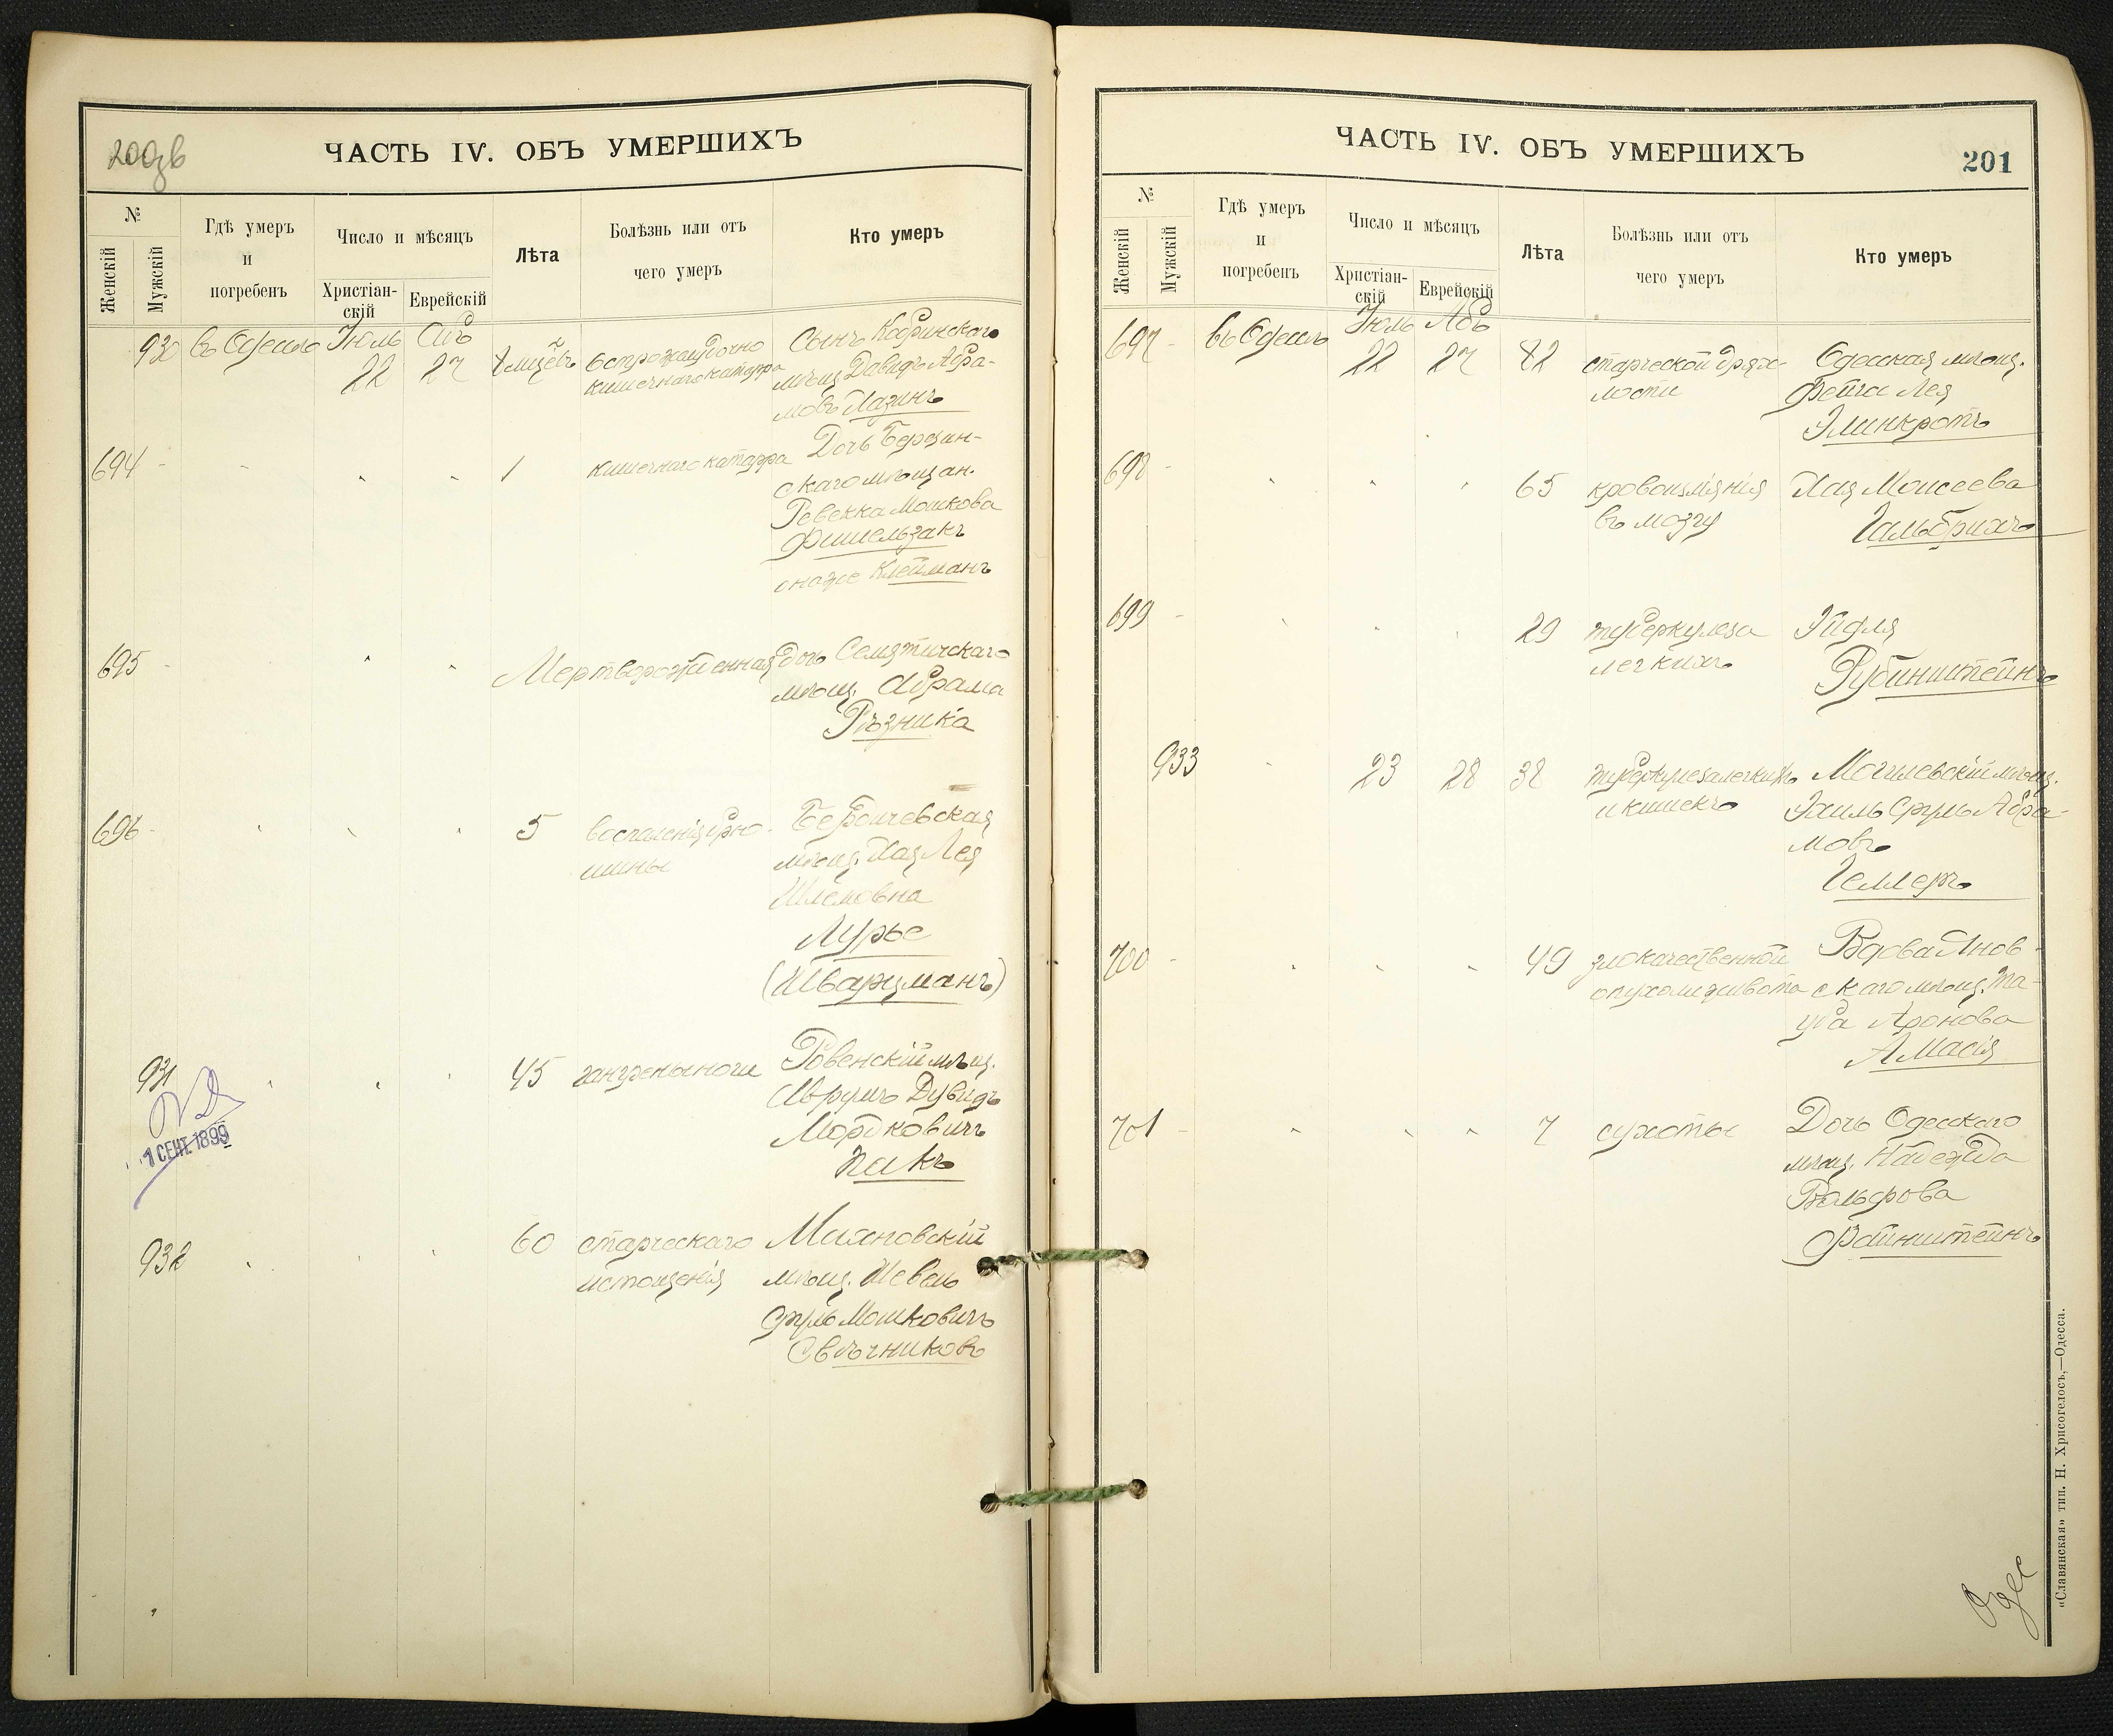 200об
ЧАСТЬ IV. ОБЪ УМЕРШИХЪ
№
Женскій
Мужскій
Гдѣ умеръ
и
погребенъ
Число и мѣсяцъ
Христіан-
скій
Еврейскій
Лѣта
Болѣзнь или отъ
чего умеръ
Кто умеръ
930 въ Одессѣ Іюль 22 Абъ 27
остро желудочно
кишечнаго катарра
Сынъ Кобринскаго
мѣщ. Давидъ Абра-
мовъ Хазинъ
694 1 кишечнаго катарра
Дочь Березин-
скаго мѣщан.
Ревекка Мошкова
Фишельзакъ
онаже Клейманъ
695 Мертворожденная
дочь Семятичскаго
мѣщ. Абрама
Рѣзника
696 5 воспаленія брю-
шины
Бердичевская
мѣщ. Хая Лея
Шлемовна
Лурье
(Шварцманъ)
931 45 гангрены ноги
Ровенскій мѣщ.
Аврумъ Дувидъ
Мордковичъ
Пакъ
1 СЕНТ. 1899
932 60 старческаго
истощенія
мѣщ. Шевель
Сруль Мошковичъ
Свѣчниковъ
ЧАСТЬ IV. ОБЪ УМЕРШИХЪ
201
№
Женскій
Мужскій
Гдѣ умеръ
и
погребенъ
Число и мѣсяцъ
Христіан-
скій
Еврейскій
Лѣта
Болѣзнь или отъ
чего умеръ
Кто умеръ
697 въ Одессѣ Іюль 22 Абъ 27 82
старческой дрях-
лости
Одесская мѣщ.
Фейга Лея
Элинкротъ
698 65 кровоизліянія
въ мозгу
Хая Моисеева
Гальбрихъ
699 29 туберкулеза
легкихъ
Эйдля
Рубинштейнъ
933 23 28 38 туберкулеза легкихъ
и кишекъ
Могилевскій мѣщ.
Эхиль Сруль Абра-
мовъ
Геллеръ
700 49 злокачественной
опухоли живота
Вдова Янов-
скаго мѣщ. Та-
уба Аронова
Амасія
701 7 сухотые
Дочь Одесскаго
мѣщ. Надежда
Вольфова
Файнштейнъ
Одес
«Славянская» тип. Н. Хрисогелосъ,—Одесса.